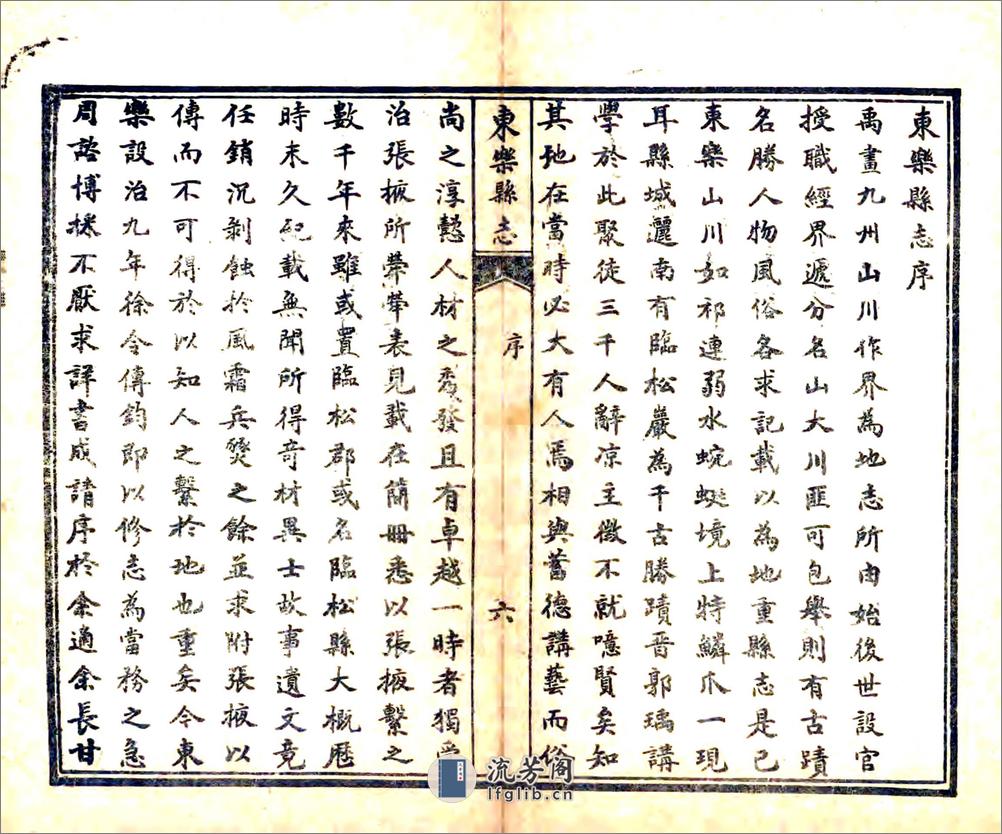 東樂縣志序
禹畫九州山川作界為地志所由始後世設官
授職經界遞分名山大川匪可包舉則有古蹟
名勝人物風俗各求記載以為地重縣志是已
東樂山川如祁連弱水蜿蜒境上特鱗爪一現
耳縣城邐南有臨松巖為千古勝蹟晉郭瑀講
學於此聚徒三千人辭凉主徵不就噫賢矣知
其地在當時必大有人焉相與蓄德講藝而俗
東樂縣志
序
六
尚之淳懿人材之秀發且有卓越一時者獨受
治張掖所犖犖表見載在簡冊悉以張掖繫之
數千年來雖或置臨松郡或名臨松縣大概歷
時未久紀載無聞所得奇材異士故事遺文竟
任銷沉剝蝕於風霜兵燹之餘並求附張掖以
傳而不可得於以知人之繫於地也重矣今東
樂設治九年徐令傳鈞即以修志為當務之急
周諮博採不厭求詳書成請序於余適余長甘
流芳阁
lfglib.cn